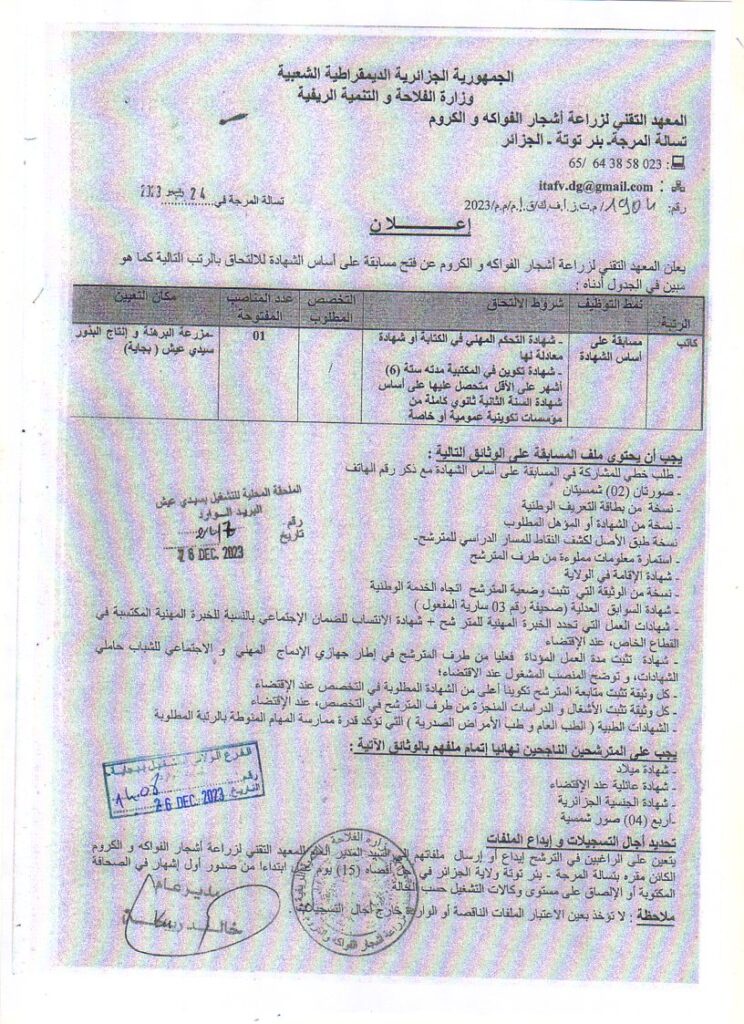 الجمهورية الجزائرية الديمقراطية الشعبية
وزارة الفلاحة و التنمية الريفية
المعهد التقني لزراعة أشجار الفواكه و الكروم
تسالة المرجة- بئر توتة - الجزائر
023 58 38 64 /65
itafv.dg@gmail.com :
رقم: /م.ت.ز.أ.ف.ك/ق.إ.م/م.م/2023
تسالة المرجة في 24 2023
إعــــــلان
يعلن المعهد التقني لزراعة أشجار الفواكه و الكروم عن فتح مسابقة على أساس الشهادة للالتحاق بالرتب التالية كما هو
مبين في الجدول أدناه :
الرتبة نمط التوظيف شروط الالتحاق التخصص المطلوب عدد المناصب المفتوحة مكان التعيين
كاتب مسابقة على أساس الشهادة
- شهادة التحكم المهني في الكتابة أو شهادة
معادلة لها
- شهادة تكوين في المكتبية مدته ستة (6)
أشهر على الأقل متحصل عليها على أساس
شهادة السنة الثانية ثانوي كاملة من
مؤسسات تكوينية عمومية أو خاصة
/
01
-مزرعة البرهنة و إنتاج البذور
سيدي عيش ( بجاية)
يجب أن يحتوي ملف المسابقة على الوثائق التالية :
- طلب خطي للمشاركة في المسابقة على أساس الشهادة مع ذكر رقم الهاتف
- صورتان (02) شمسيتان
- نسخة من بطاقة التعريف الوطنية
- نسخة من الشهادة أو المؤهل المطلوب
نسخة طبق الأصل لكشف النقاط للمسار الدراسي للمترشح-
- استمارة معلومات مملوءة من طرف المترشح
- شهادة الإقامة في الولاية
- نسخة من الوثيقة التي تثبت وضعية المترشح اتجاه الخدمة الوطنية
- شهادة السوابق العدلية (صحيفة رقم 03 سارية المفعول )
- شهادات العمل التي تحدد الخبرة المهنية للمترشح + شهادة الانتساب للضمان الإجتماعي بالنسبة للخبرة المهنية المكتسبة في
القطاع الخاص، عند الإقتضاء
- شهادة تثبت مدة العمل المؤداة فعليا من طرف المترشح في إطار جهازي الإدماج المهني و الاجتماعي للشباب حاملي
الشهادات، و توضح المنصب المشغول عند الاقتضاء؛
- كل وثيقة تثبت متابعة المترشح تكوينا أعلى من الشهادة المطلوبة في التخصص عند الإقتضاء
- كل وثيقة تثبت الأشغال و الدراسات المنجزة من طرف المترشح في التخصص، عند الإقتضاء
- الشهادات الطبية ( الطب العام و طب الأمراض الصدرية ) التي تؤكد قدرة ممارسة المهام المنوطة بالرتبة المطلوبة
الملحقة المحلية للتشغيل بسيدي عيش
البريد الوارد
رقم
تاريخ 26 DEC. 2023
يجب على المترشحين الناجحين نهائيا إتمام ملفهم بالوثائق الآتية :
- شهادة ميلاد
- شهادة عائلية عند الإقتضاء
- شهادة الجنسية الجزائرية
-أربع (04) صور شمسية
رقم
التاريخ 26 DEC. 2023
تحديد أجال التسجيلات و إيداع الملفات
يتعين على الراغبين في الترشح إيداع أو إرسال ملفاتهم السيد المدير المعهد التقني لزراعة أشجار الفواكه و الكروم
الكائن مقره بتسالة المرجة - بئر توتة ولاية الجزائر في أقصاه (15) يوم ابتداءا من صدور أول إشهار في الصحافة
المكتوبة أو الإلصاق على مستوى وكالات التشغيل حسب الحالة
ملاحظة : لا تؤخذ بعين الاعتبار الملفات الناقصة أو الواردة خارج أجال التسجيلات.
مدير عام